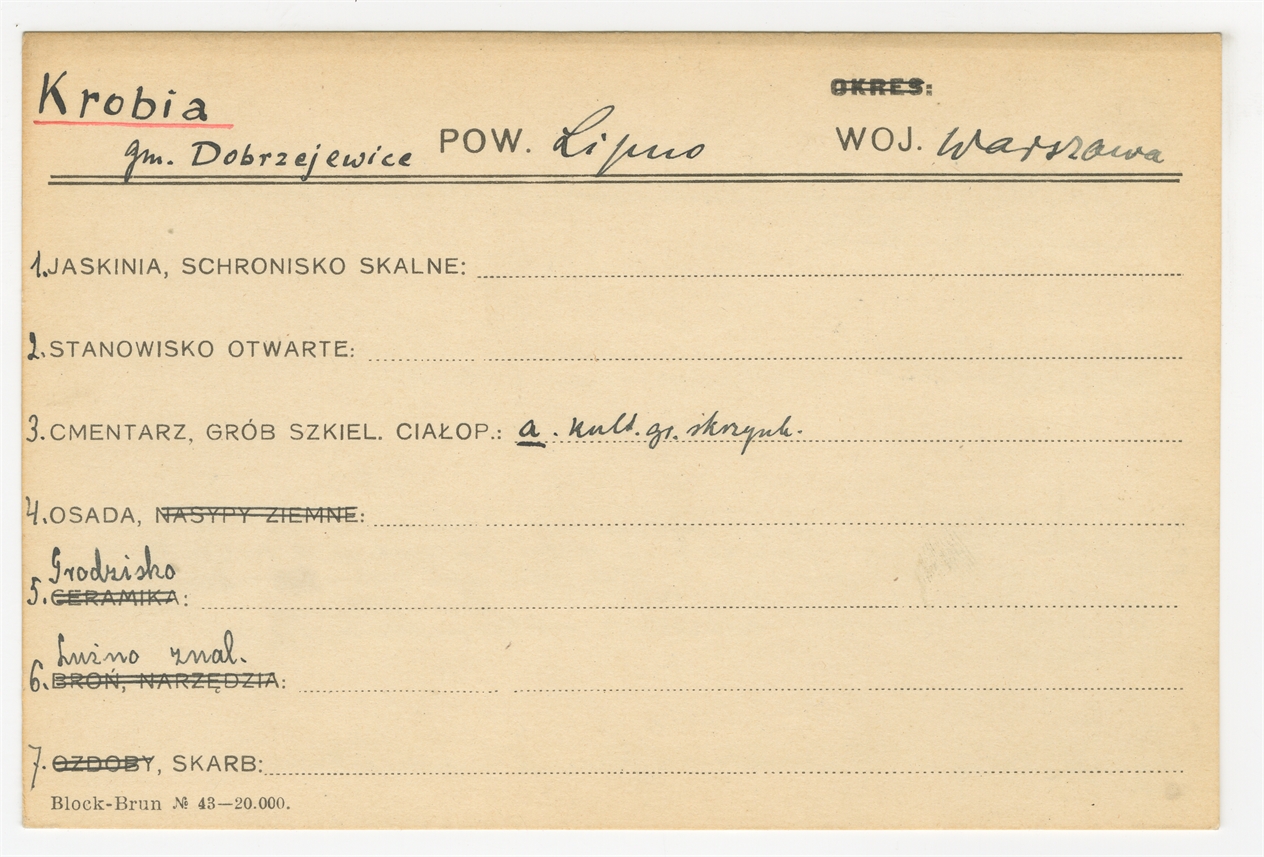 OKRES:
Krobia
gm. Dobrzejewice POW. Lipno WOJ. Warszawa
1. JASKINIA, SCHRONISKO SKALNE:
2. STANOWISKO OTWARTE:
3. CMENTARZ, GRÓB SZKIEL. CIAŁOP.: a. kult. gr. skrzynk.
4. OSADA, NASYPY ZIEMNE:
Grodzisko
5. CERAMIKA:
Luźno znal.
6. BROŃ, NARZĘDZIA:
7. OZDOBY, SKARB:
Block-Brun № 43—20.000.